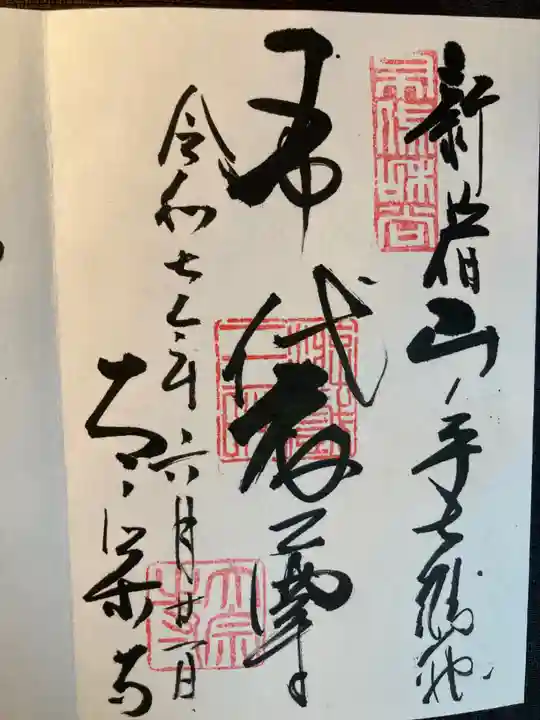 新宿山ノ手七福神
布袋尊
令和七年六月廿一日
太宗寺